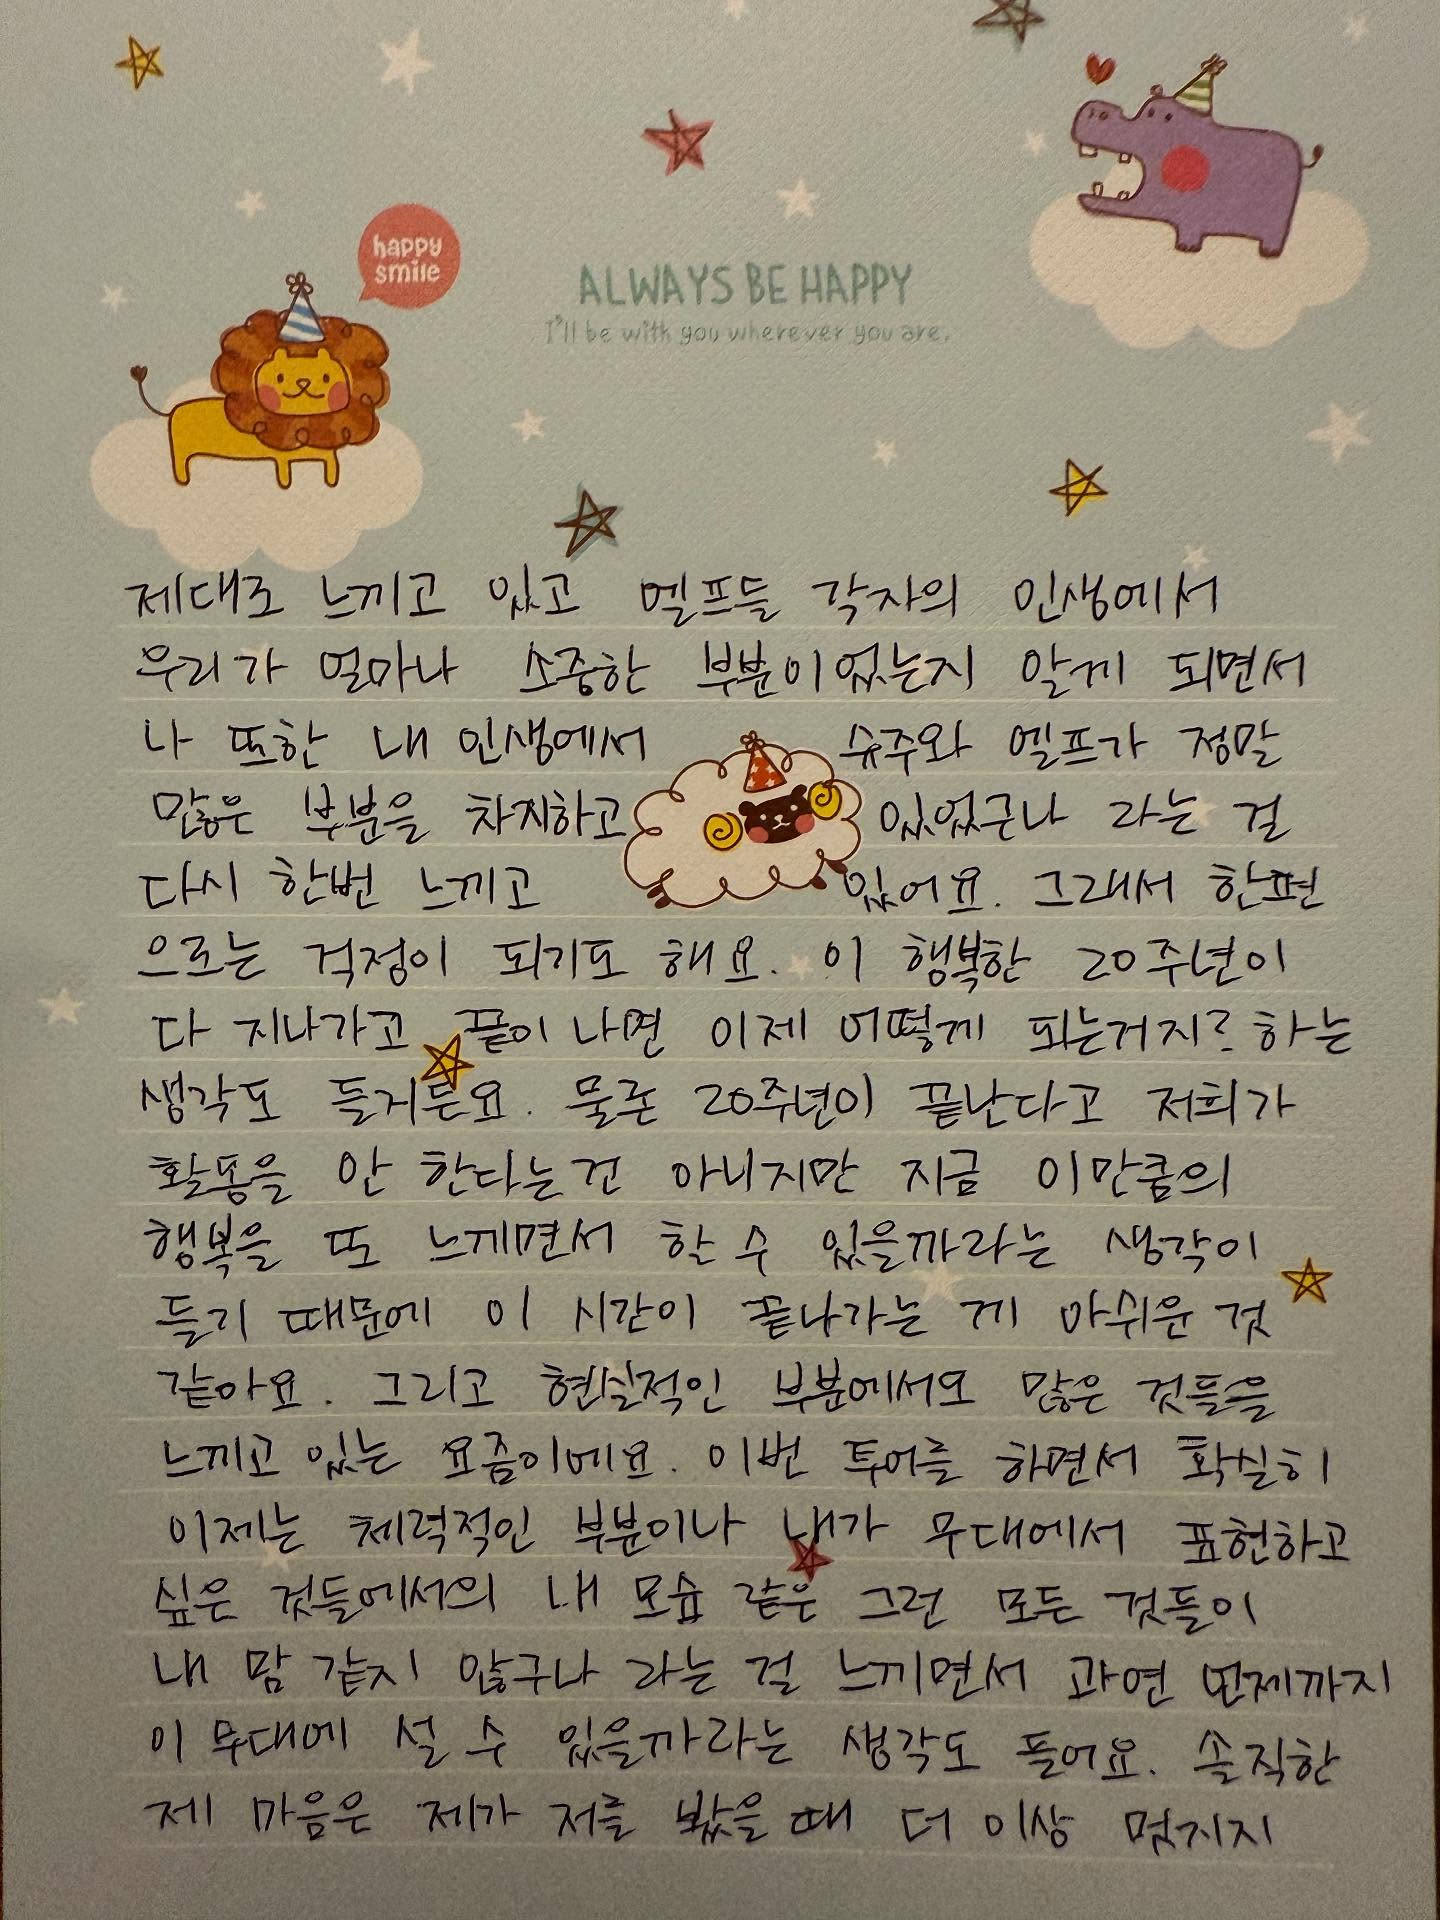 happy
smile
ALWAYS BE HAPPY
I'll be with you wherever you are.
제대로 느끼고 있고 엘프들 각자의 인생에서
우리가 얼마나 소중한 부분이었는지 알게 되면서
나 또한 내 인생에서 슈주와 엘프가 정말
많은 부분을 차지하고 있었구나 라는 걸
다시 한번 느끼고 있어요. 그래서 한편
으로는 걱정이 되기도 해요. 이 행복한 20주년이
다 지나가고 끝이 나면 이제 어떻게 되는거지? 하는
생각도 들거든요. 물론 20주년이 끝난다고 저희가
활동을 안 한다는건 아니지만 지금 이만큼의
행복을 또 느끼면서 할 수 있을까라는 생각이
들기 때문에 이 시간이 끝나가는 게 아쉬운 것
같아요. 그리고 현실적인 부분에서도 많은 것들을
느끼고 있는 요즘이에요. 이번 투어를 하면서 확실히
이제는 체력적인 부분이나 내가 무대에서 표현하고
싶은 것들에서의 내 모습 같은 그런 모든 것들이
내 맘 같지 않구나 라는 걸 느끼면서 과연 언제까지
이 무대에 설 수 있을까라는 생각도 들어요. 솔직한
제 마음은 제가 저를 봤을 때 더 이상 멋지지